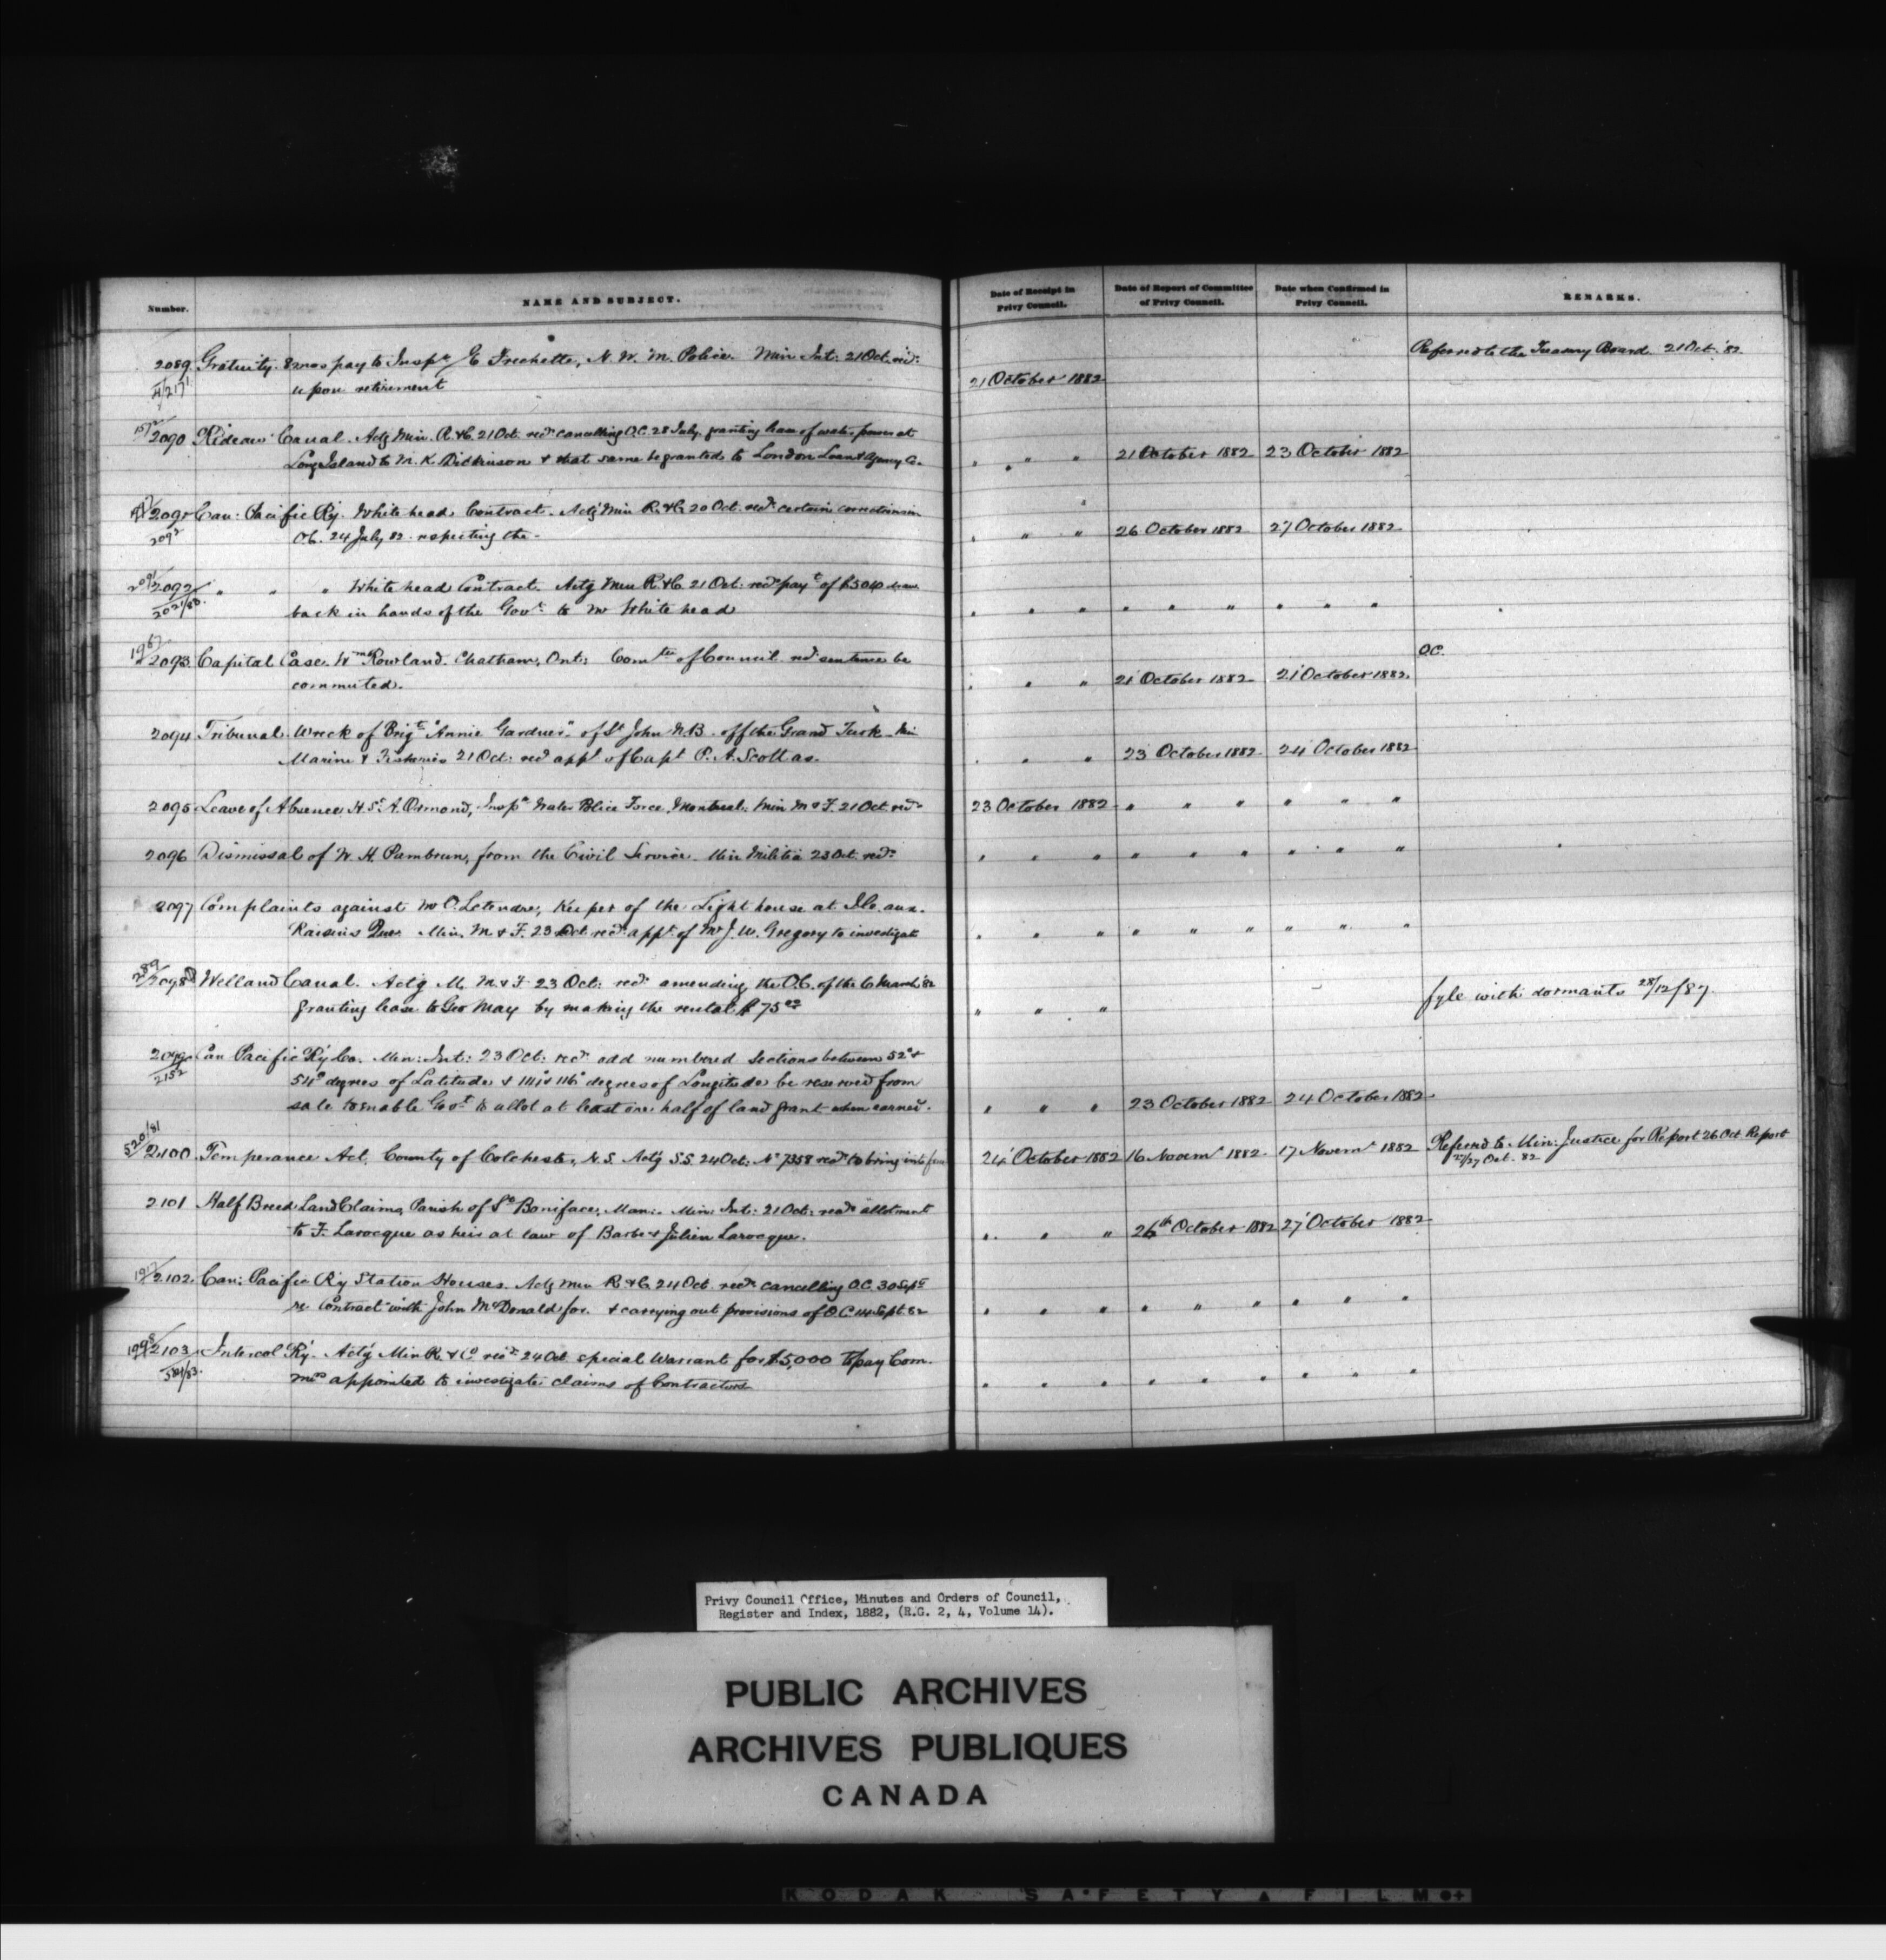 Number. NAME AND SUBJECT. Date of Receipt in Privy Council. Date of Report of Committee of Privy Council. Date when Confirmed in Privy Council. REMARKS.
2089 Gratuity. 82 mos pay to Insp.r E Frechette, N. W. M. Police. Min Int: 21 Oct. rec.d Referred to the Treasury Board 21 Oct. '82.
upon retirement 21 October 1882
2090 Rideau Canal. Actg Min. R. & C. 21 Oct. recd cancelling O.C. 28 July. granting lease of water power at
Long Island to M. K. Dickinson & that same be granted to London Loan & Agency Co. " " " 21 October 1882 23 October 1882
2091 Can: Pacific Ry. Whitehead Contract. Actg Min R. & C. 20 Oct. recd certain corrections in
2092
O.C. 24 July 82. respecting the - " " " 26 October 1882 27 October 1882
2091 2092 " " " Whitehead Contract. Actg Min R. & C. 21 Oct: recd payt of $5040
2021/83. back in hands of the Govt to Mr Whitehead " " " " " " " " "
1967 2093 Capital Case. Wm Rowland. Chatham, Ont: Comtee of Council recd sentence be O.C.
commuted. " " " 21 October 1882 21 October 1882.
2094 Tribunal. Wreck of Brigt "Annie Gardner" of St John N.B. off the Grand Turk - Min
Marine & Fisheries 21 Oct: recd appt of Capt P. A. Scott as. " " " 23 October 1882 24 October 1882
2095 Leave of Absence. H. St. A. Ormond, Inspr Water Police Force, Montreal. Min M & F. 21 Oct. recd 23 October 1882 " " " " " "
2096 Dismissal of W. H. Pambrun, from the Civil Service. Min Militia 23 Oct. recd " " " " " " " " "
2097 Complaints against Mr O. Letendre, Keeper of the Light house at Ile aux.
Raisins Que. Min. M & F. 23 Oct. recd appt of Mr J. W. Gregory to investigate " " " " " " " " "
2098 Welland Canal. Actg M. M & F 23 Oct: recd amending the O.C. of the 6 March '82
granting lease to Geo May by making the rental $75 " " " fyle with dormants 28/12/87.
2099 Can Pacific Ry Co. Min: Int: 23 Oct: recd odd numbered Sections between 52° &
2152
54° degrees of Latitude & 111° & 116° degrees of Longitude be reserved from
sale to enable Govt to allot at least one half of land grant when earned. " " " 23 October 1882 24 October 1882
520/81 2100 Temperance Act, County of Colchester, N. S. Actg S.S. 24 Oct: No 7358 recd to bring into force 24 October 1882 16 Novemr 1882 17 Novemr 1882 Referred to Min: Justice for Report 26 Oct. Report
27 Oct. 82
2101 Half Breed Land Claims, Parish of St Boniface, Man: Min: Int: 21 Oct: recd allotment
to F. Larocque as heir at law of Barbe & Julien Larocque. " " " 26th October 1882 27 October 1882
2102. Can: Pacific Ry Station Houses. Actg Min R. & C. 24 Oct recd cancelling O.C. 30 Sept
re Contract with John McDonald for. & carrying out provisions of O.C. 14 Sept. 82 " " " " " " " " "
2103 Intercol Ry. Actg Min R. & C. recd 24 Oct special Warrant for $5,000 to pay Com.
mrs appointed to investigate claims of Contractors " " " " " " " " "
Privy Council Office, Minutes and Orders of Council,
Register and Index, 1882, (R.G. 2, 4, Volume 14).
PUBLIC ARCHIVES
ARCHIVES PUBLIQUES
CANADA
KODAK SAFETY FILM